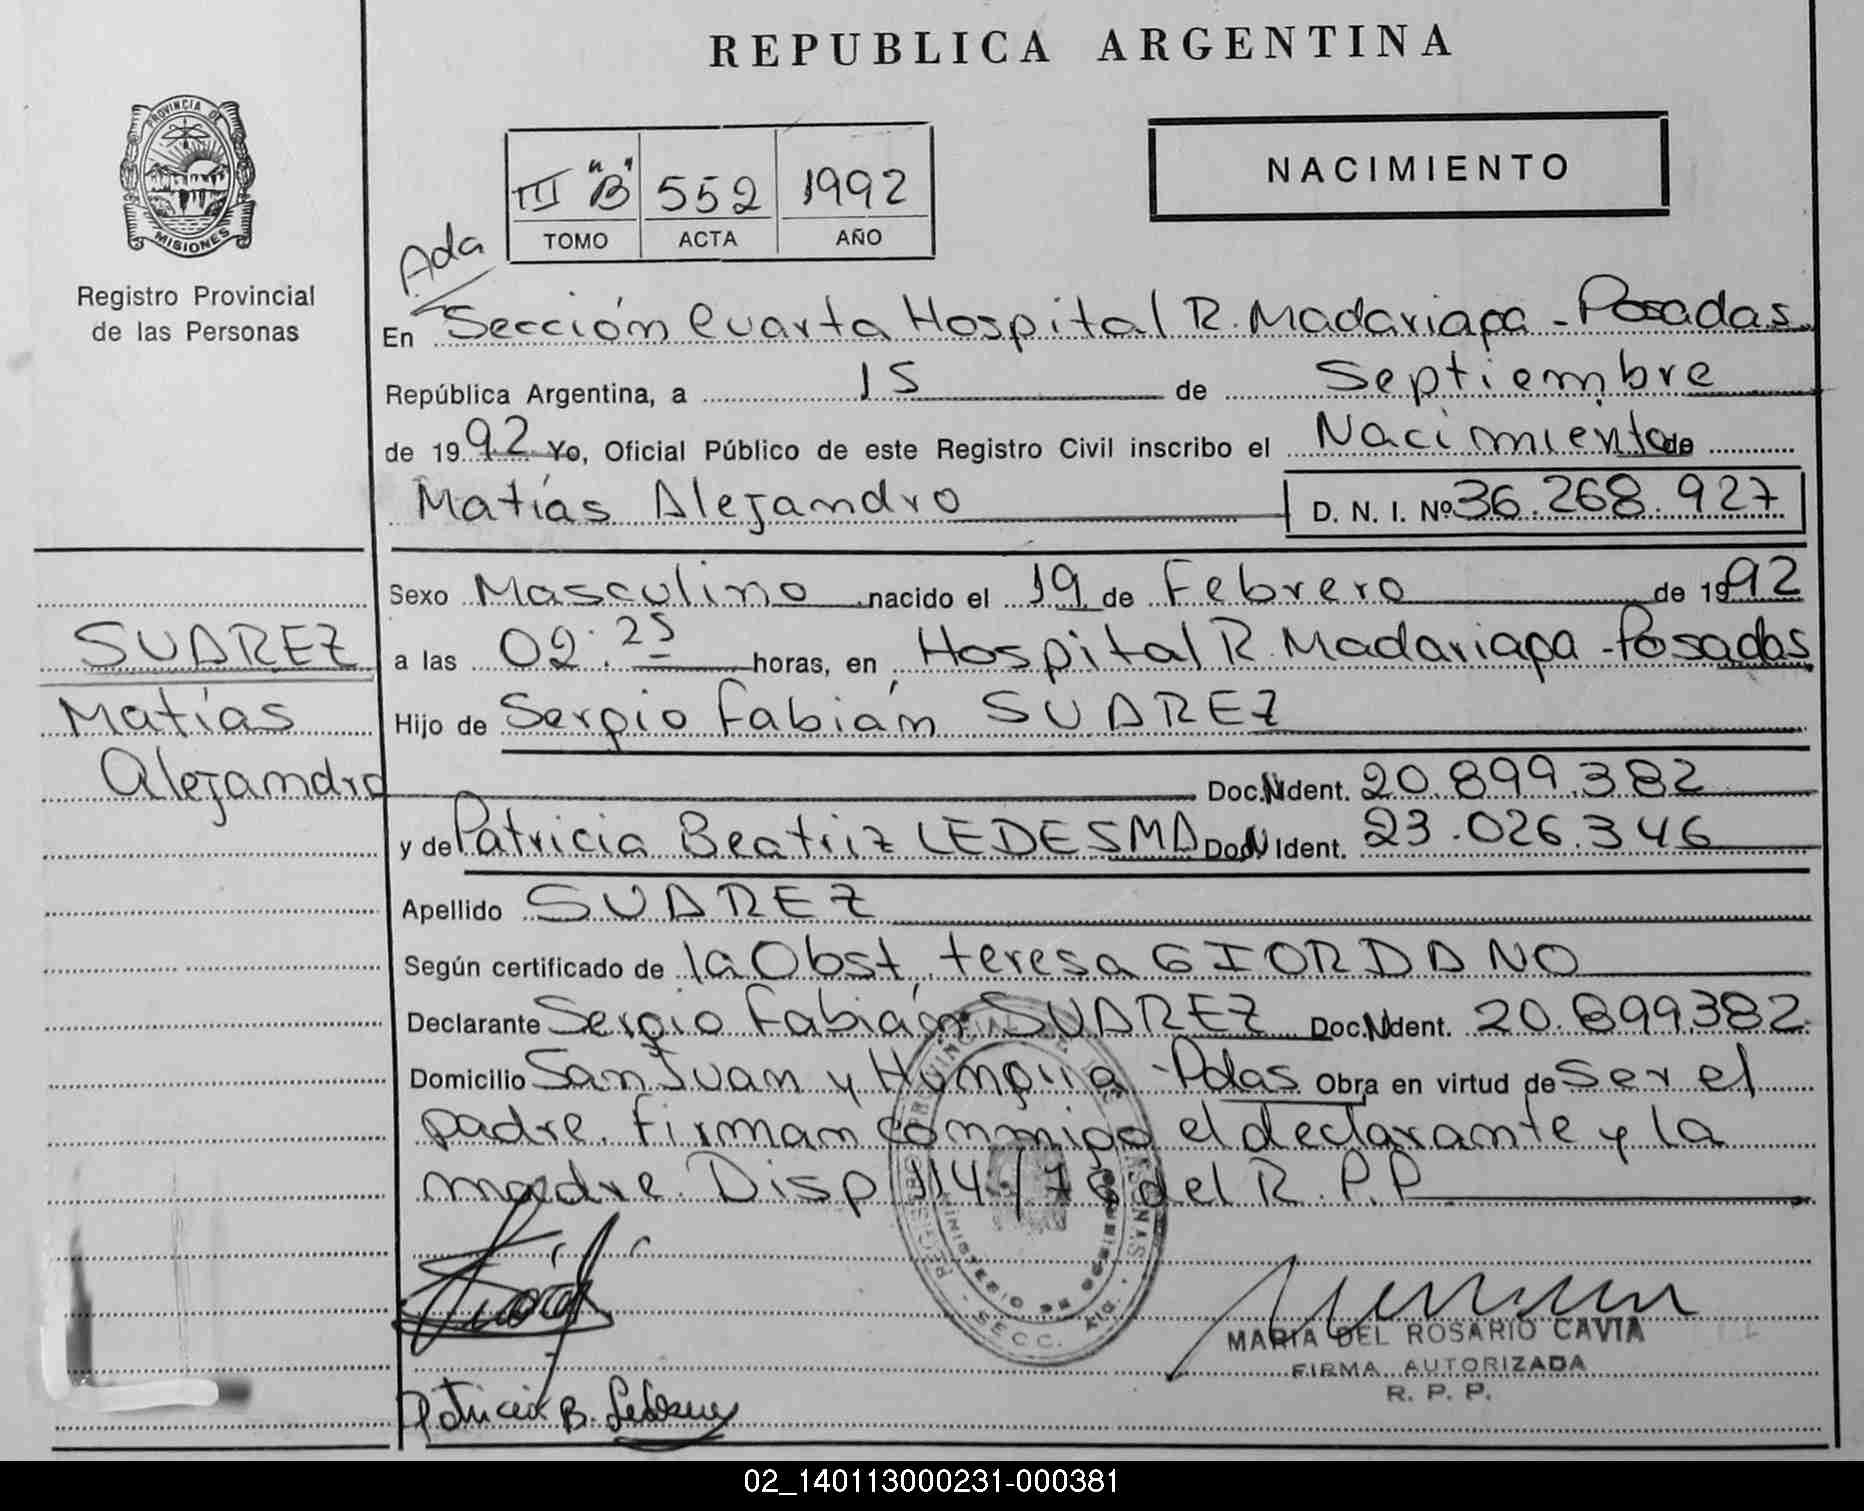 REPUBLICA ARGENTINA
PROVINCIA DE
MISIONES
Registro Provincial
de las Personas
III "B" 552 1992
TOMO ACTA AÑO
NACIMIENTO
Ada
En Sección Cuarta Hospital R. Madariaga - Posadas
República Argentina, a 15 de Septiembre
de 1992 Yo, Oficial Público de este Registro Civil inscribo el Nacimiento de
Matías Alejandro D. N. I. Nº 36.268.927
Sexo Masculino nacido el 19 de Febrero de 1992
a las 02.25 horas, en Hospital R. Madariaga - Posadas
SUAREZ
Matías
Alejandro
Hijo de Sergio Fabián SUAREZ
Doc. N Ident. 20.899.382
y de Patricia Beatriz LEDESMA Doc. N Ident. 23.026.346
Apellido SUAREZ
Según certificado de la Obst. teresa GIORDANO
Declarante Sergio Fabián SUAREZ Doc. N Ident. 20.899382
Domicilio San Juan y - Pdas. Obra en virtud de ser el
padre. firman conmigo el declarante y la
madre. Disp 114/76 del R.P.P
SECC.
MINISTERIO DE
MARIA DEL ROSARIO CAVIA
FIRMA AUTORIZADA
R. P. P.
Patricia B. Ledesma
02_140113000231-000381